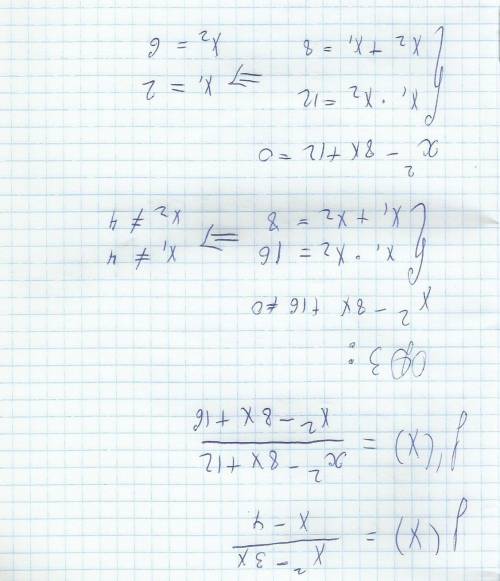 f(x) = (x² - 3x) / (x - 4)
f'(x) = (x² - 8x + 12) / (x² - 8x + 16)
ОДЗ:
x² - 8x + 16 ≠ 0
{ x₁ · x₂ = 16 ⇒ x₁ ≠ 4
{ x₁ + x₂ = 8 x₂ ≠ 4
x² - 8x + 12 = 0
{ x₁ · x₂ = 12 ⇒ x₁ = 2
{ x₂ + x₁ = 8 x₂ = 6